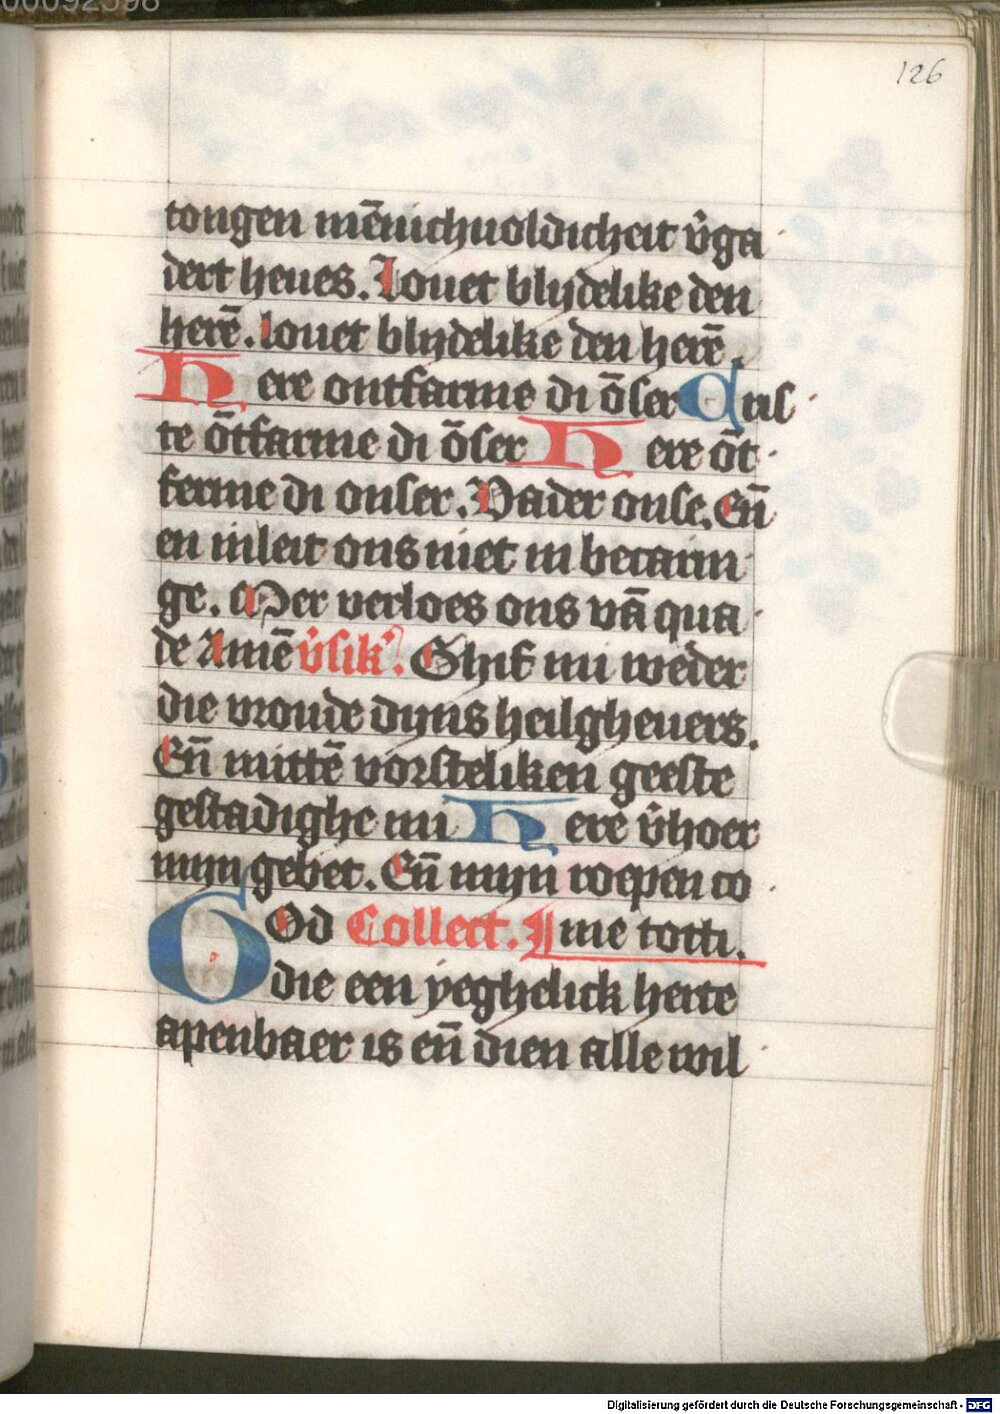 126
tongen mēnichuoldicheit v̉ga
dert heues. Louet blydelike den
herē. louet blydelike den herē.
Here ontfarme di ōser Cris
te ōtfarme di ōser Here ōt
ferme di onser. Vader onse. Eñ
en inleit ons niet in becarin
ge. Mer verloes ons vā qua
de Amē v̉sik᷒. Ghif mi weder
die vroude dyns heilgheuers.
Eñ mittē vorsteliken geeste
gestadighe mi Here v̉hoer
myn gebet. Eñ myn roepen to
GOd Collect. I me totti.
die een yeghelick herte
apenbaer is eñ dien alle wil
Digitalisierung gefördert durch die Deutsche Forschungsgemeinschaft - DFG